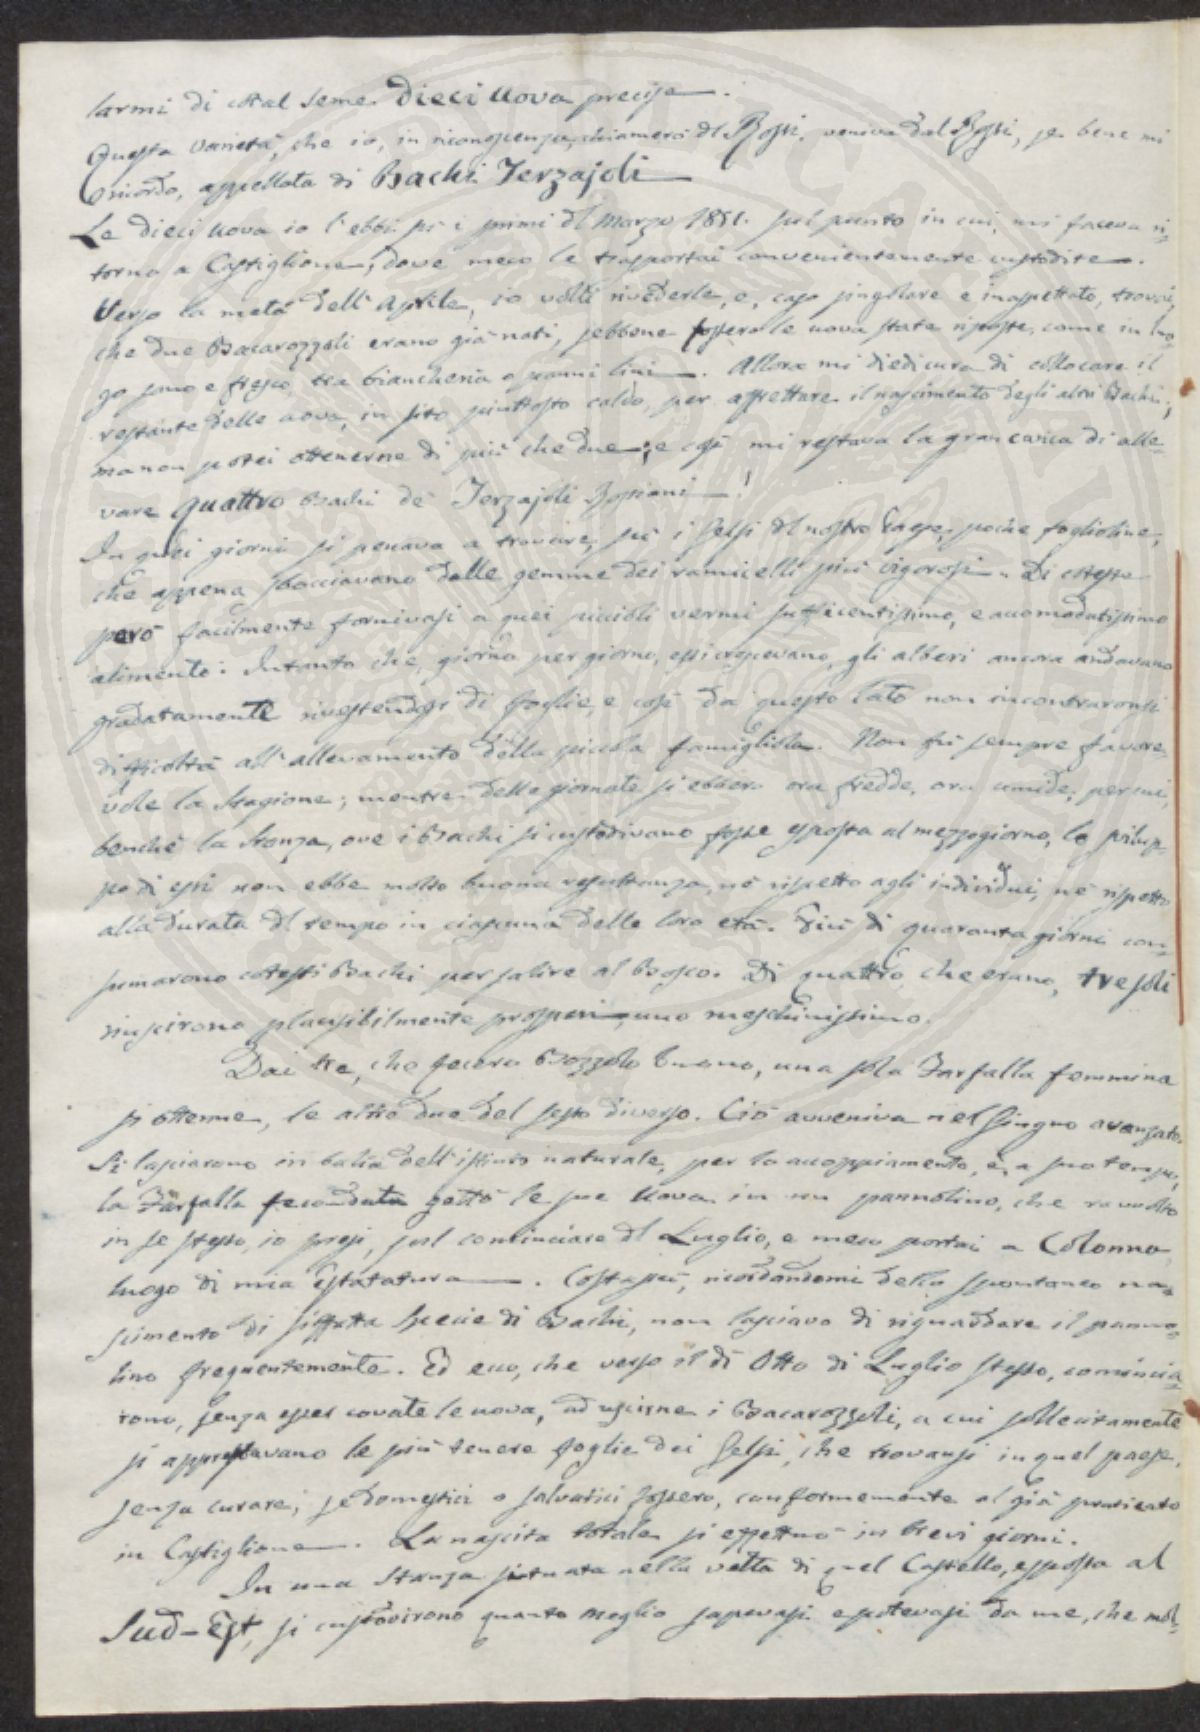 larmi di cotal seme Dieci Uova precise.
Questa varietà, che io, in riconoscenza, chiamerei del Rossi, veniva dal Rossi, se bene mi
ricordo, appellata di Bachi Terzajoli
Le dieci uova io l'ebbi sù i primi del Marzo 1851. sul punto in cui mi faceva ri-
torno a Castiglione, dove meco le trasportai convenientemente custodite.
Verso la metà dell'Aprile, io volli rivederle, e, caso singolare e inaspettato, trovai,
che due Bacarozzoli erano già nati, sebbene fossero le uova state riposte, come in luo-
go sano e fresco, tra biancheria e panni lini. Allora mi diedi cura di collocare il
restante delle uova, in sito piuttosto caldo, per aspettare il nascimento degli altri Bachi;
ma non potei ottenerne di più che due; e così mi restava la gran carica di alle-
vare quattro Bachi de' Terzajoli Rossiani!
In quei giorni si penava a trovare, sù i Gelsi del nostro Paese, poche foglioline,
che appena sbocciavano dalle gemme dei ramicelli più vigorosi. Di coteste
però facilmente fornivasi a quei piccioli vermi sufficentissimo, e accomodatissimo
alimento: Intanto che, giorno per giorno, essi crescevano, gli alberi ancora andavano
gradatamente rivestendosi di foglie, e così da questo lato non incontraronsi
difficoltà all'allevamento della picciola famigliola. Non fù sempre favore-
vole la Stagione; mentre delle giornate si ebbero ora fredde, ora umide; per cui,
benchè la Stanza, ove i Bachi si custodivano fosse esposta al mezzogiorno, lo svilup-
po di essi non ebbe molto buona resultanza, nè rispetto agli individui, nè rispetto
alla durata del tempo in ciascuna delle loro età. Più di quaranta giorni con-
sumarono cotesti Bachi per salire al Bosco. Di quattro, che erano, tre soli
riuscirono plausibilmente prosperi, uno meschinissimo.
Dai tre, che fecero Bozzolo buono, una sola Farfalla femmina
si ottenne, le altre due del sesso diverso. Ciò avveniva nel Giugno avanzato.
Si lasciarono in balìa dell'istinto naturale, per lo accoppiamento, e, a suo tempo,
la Farfalla fecondata gettò le sue Uova in un pannolino, che ravvolto
in se stesso, io presi, sul cominciare del Luglio, e meco portai a Colonna
luogo di mia Estatatura. Costassù, ricordandomi dello spontaneo na-
scimento di siffatta specie di Bachi, non lasciavo di riguardare il panno-
lino frequentemente. Ed ecco, che verso il dì Otto di Luglio stesso, comincia-
rono, senza esser covate le uova, ad uscirne i Bacarozzoli, a cui sollecitamente
si apprestavano le più tenere foglie dei Gelsi, che trovansi in quel paese,
senza curare, se domestici o salvatici fossero, conformemente al già praticato
in Castiglione. La nascita totale si effettuò in brevi giorni.
In una Stanza situata nella vetta di quel Castello, esposta al
Sud-Est, si custodirono quanto meglio sapevasi e potevasi da me, che mol-